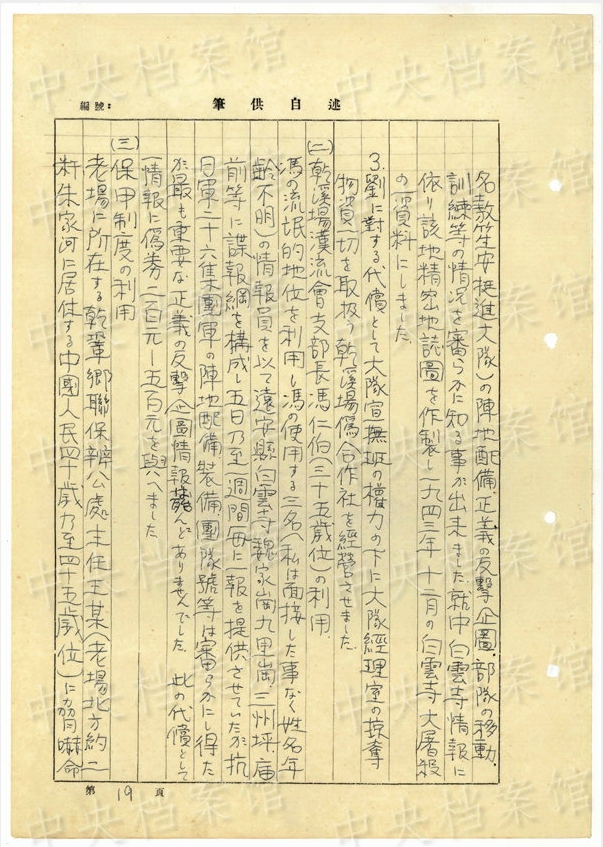 筆供自述
編號:
名敎筆安挺進大隊)の陣地配備、正義の反撃企圖、部隊の移動、
訓練等の情況を審らかに知る事が出来ました、就中白雲寺情報に
依り該地精密地誌圖を作製し一九四三年十二月の白雲寺大屠殺
の一資料にしました。
3.劉に対する代償として大隊宣撫班の權力の下に大隊経理室の掠奪
物資一切を取扱う乾溪場偽合作社を経營させました。
(二)乾溪場漢流會支部長馮仁伯(三十五歳位)の利用
馮の流氓的地位を利用し馮の使用する三名(私は面接した事なく姓名年
齢不明)の情報員を以て遠安縣白雲寺、魏家崗、九里崗、三州坪、庙
前等に諜報網を構成し五日乃至一週間毎に一報を提供させていたが抗
日軍二十六集團軍の陣地配備、装備、團隊號等は審らかにし得た
が最も重要な正義の反撃企圖情報は殆んどありませんでした。此の代償として
一情報に偽券二百元－五百元を與へました
(三)保甲制度の利用
老場に所在する乾鞏郷聯保辨公處主任王某(老場北方約二
粁朱家河に居住する中國人民四十歳乃至四十五歳位)に脅嚇命
第 19 頁
中央档案馆